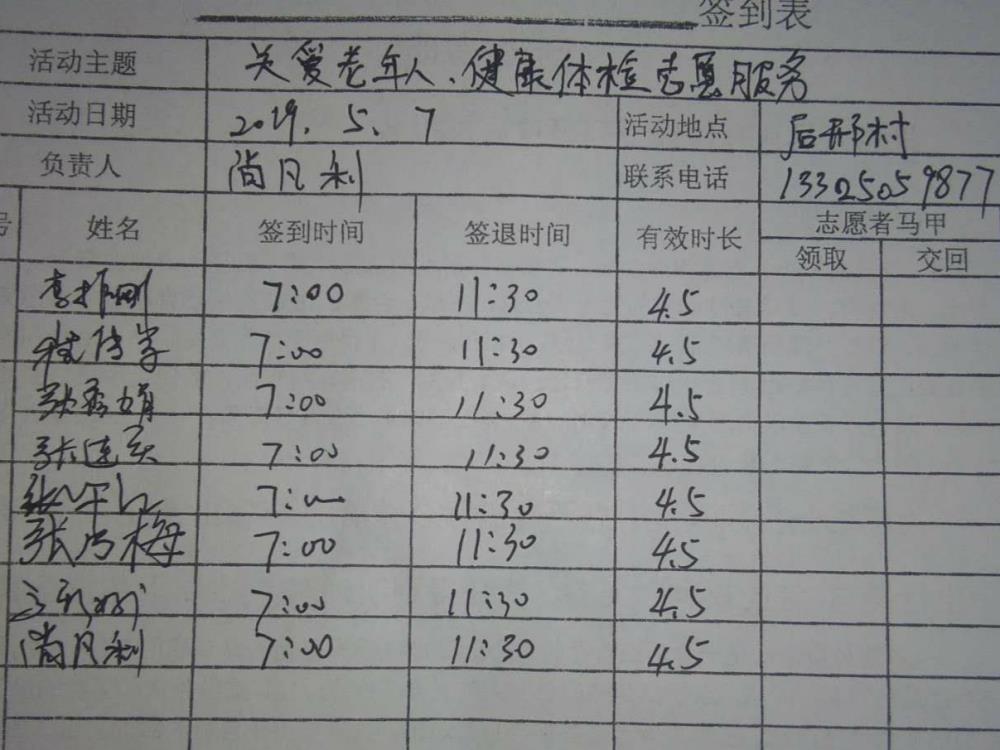 签到表
活动主题 关爱老年人、健康体检志愿服务
活动日期 2019.5.7 活动地点 后邢村
负责人 尚凡利 联系电话 13325059877
号 姓名 签到时间 签退时间 有效时长 志愿者马甲
领取 交回
7:00 11:30 4.5
7:00 11:30 4.5
张秀娟 7:00 11:30 4.5
张连英 7:00 11:30 4.5
7:00 11:30 4.5
张占梅 7:00 11:30 4.5
7:00 11:30 4.5
尚凡利 7:00 11:30 4.5